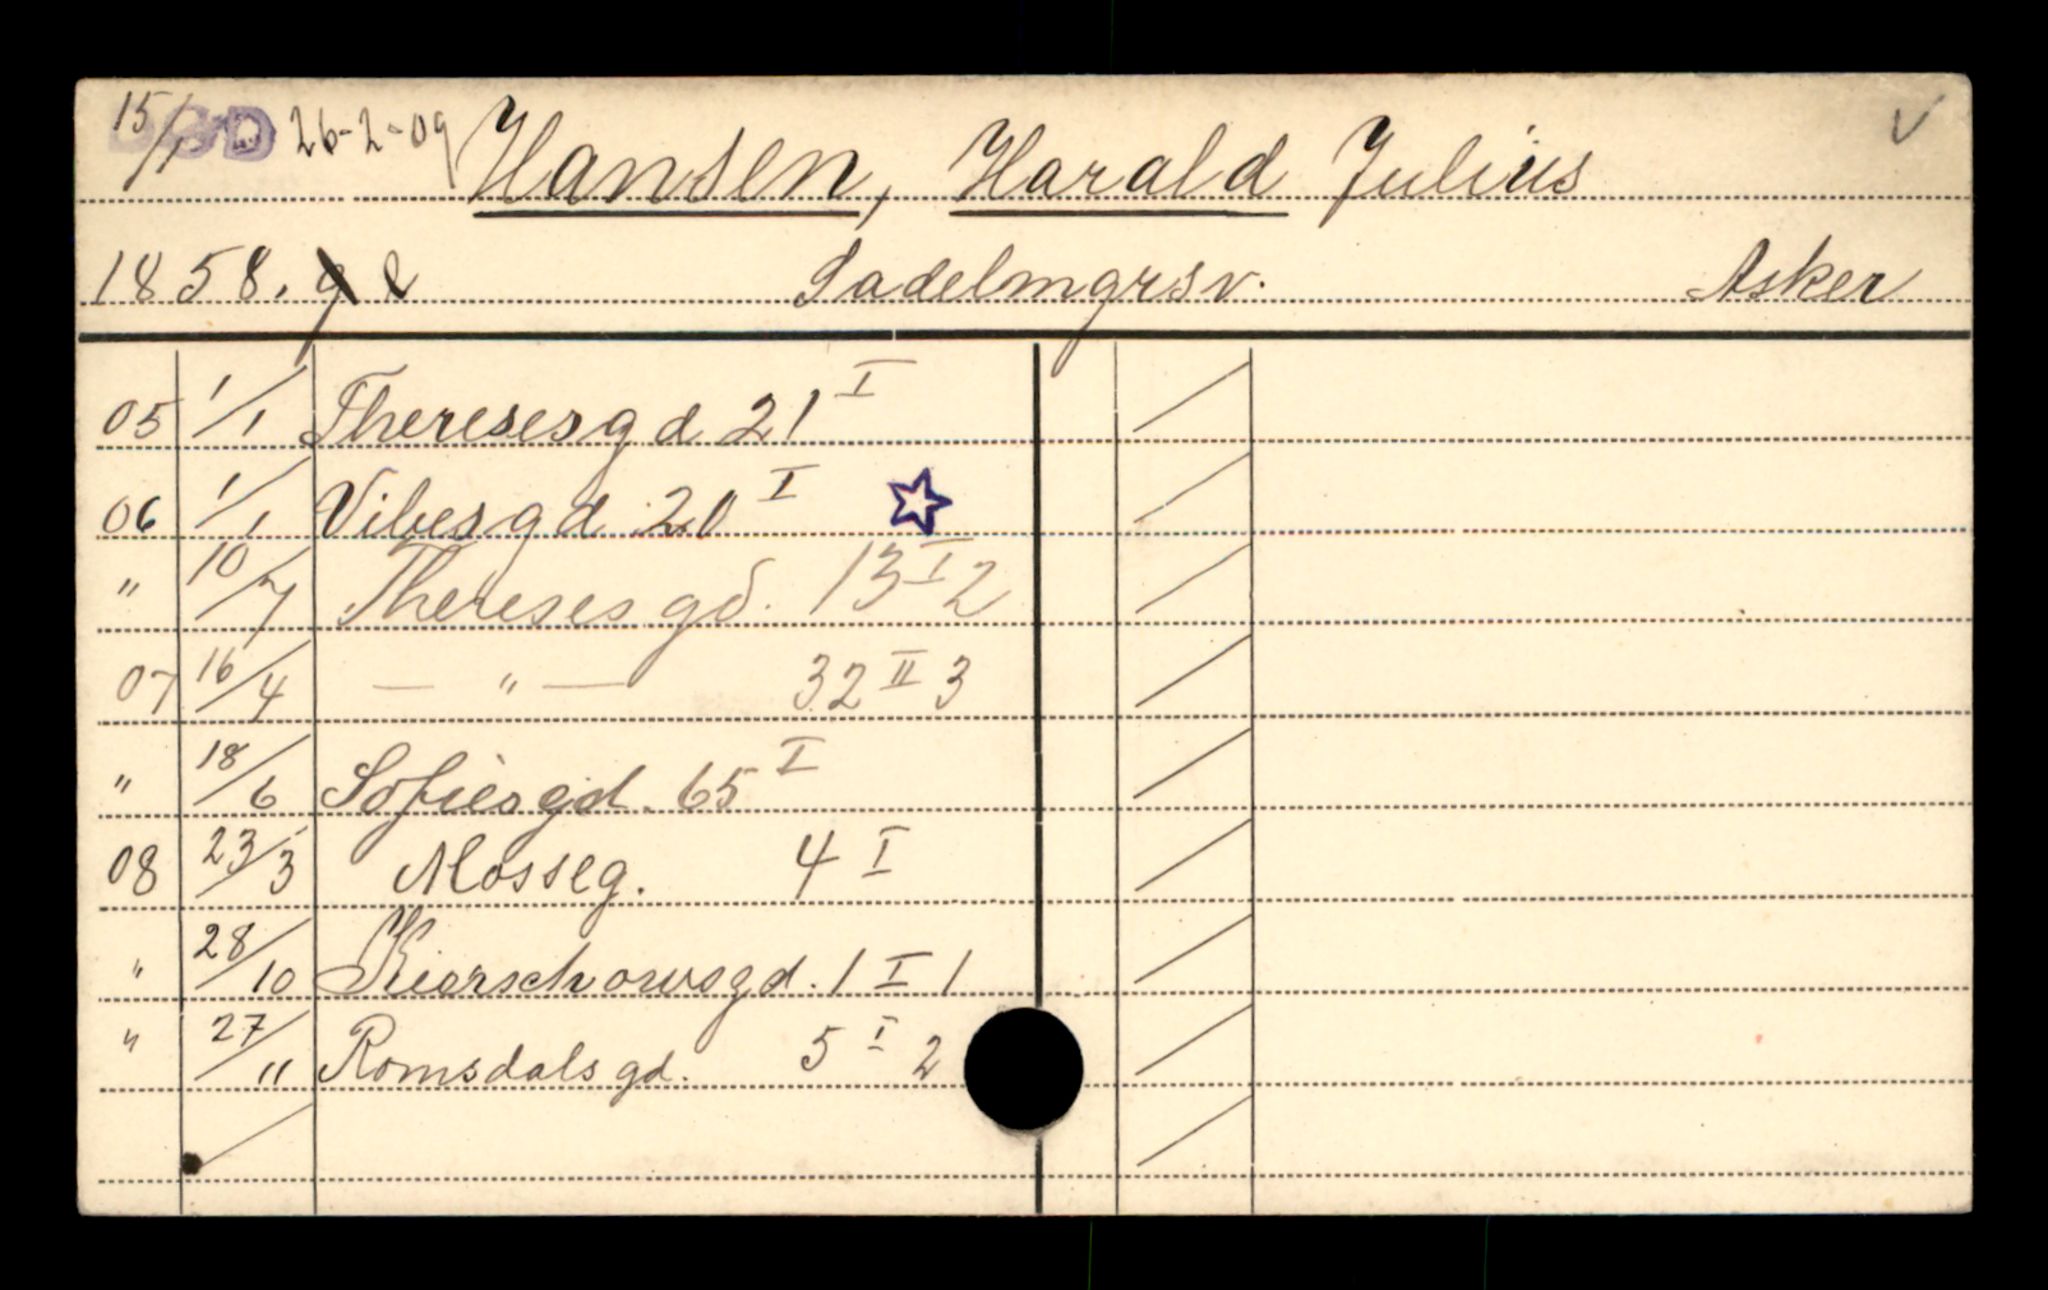 15/1 DØD 26-2-09 Hansen, Harald Julius V
1858. g e Sadelmgrsv. Asker
05 1/1 Theresesgd 21 I
06 1/1 Vibesgd 20 I
" 10/7 Theresesgd. 13 I 2
07 16/4 — " — 32 II 3
" 18/6 Sofiesgd. 65 I
08 23/3 Mosseg. 4 I
" 28/10 Kierschowsgd. 1 I 1
" 27/11 Romsdalsgd. 5 I 2